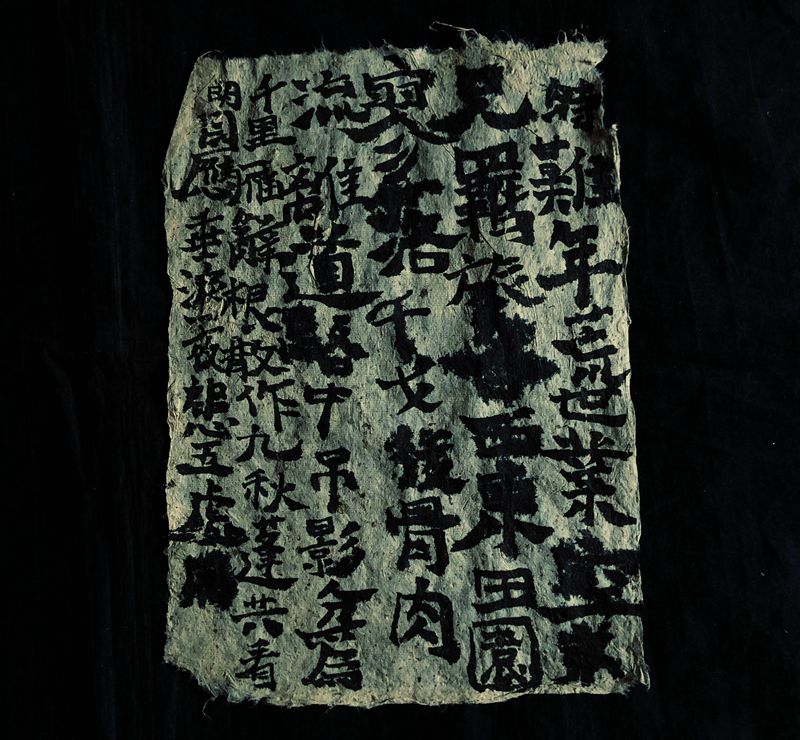 時難年荒世業空
兄羈旅各西東田園
寥落干戈後骨肉
流離道路中吊影分為
千里雁辭根散作九秋蓬共看
明月應垂淚一夜鄉心五處同